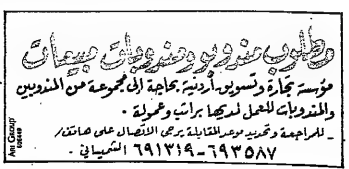 مطلوب مندوبو ومندوبات مبيعات
مؤسسة تجارة وتسويق أردنية بحاجة إلى مجموعة من المندوبين
والمندوبات للعمل لديها براتب وعمولة .
- للمراجعة وتحديد موعد المقابلة يرجى الاتصال على هاتف /
٦٩٣٥٨٧ - ٦٩١٣١٩ الشميساني .
Art Group